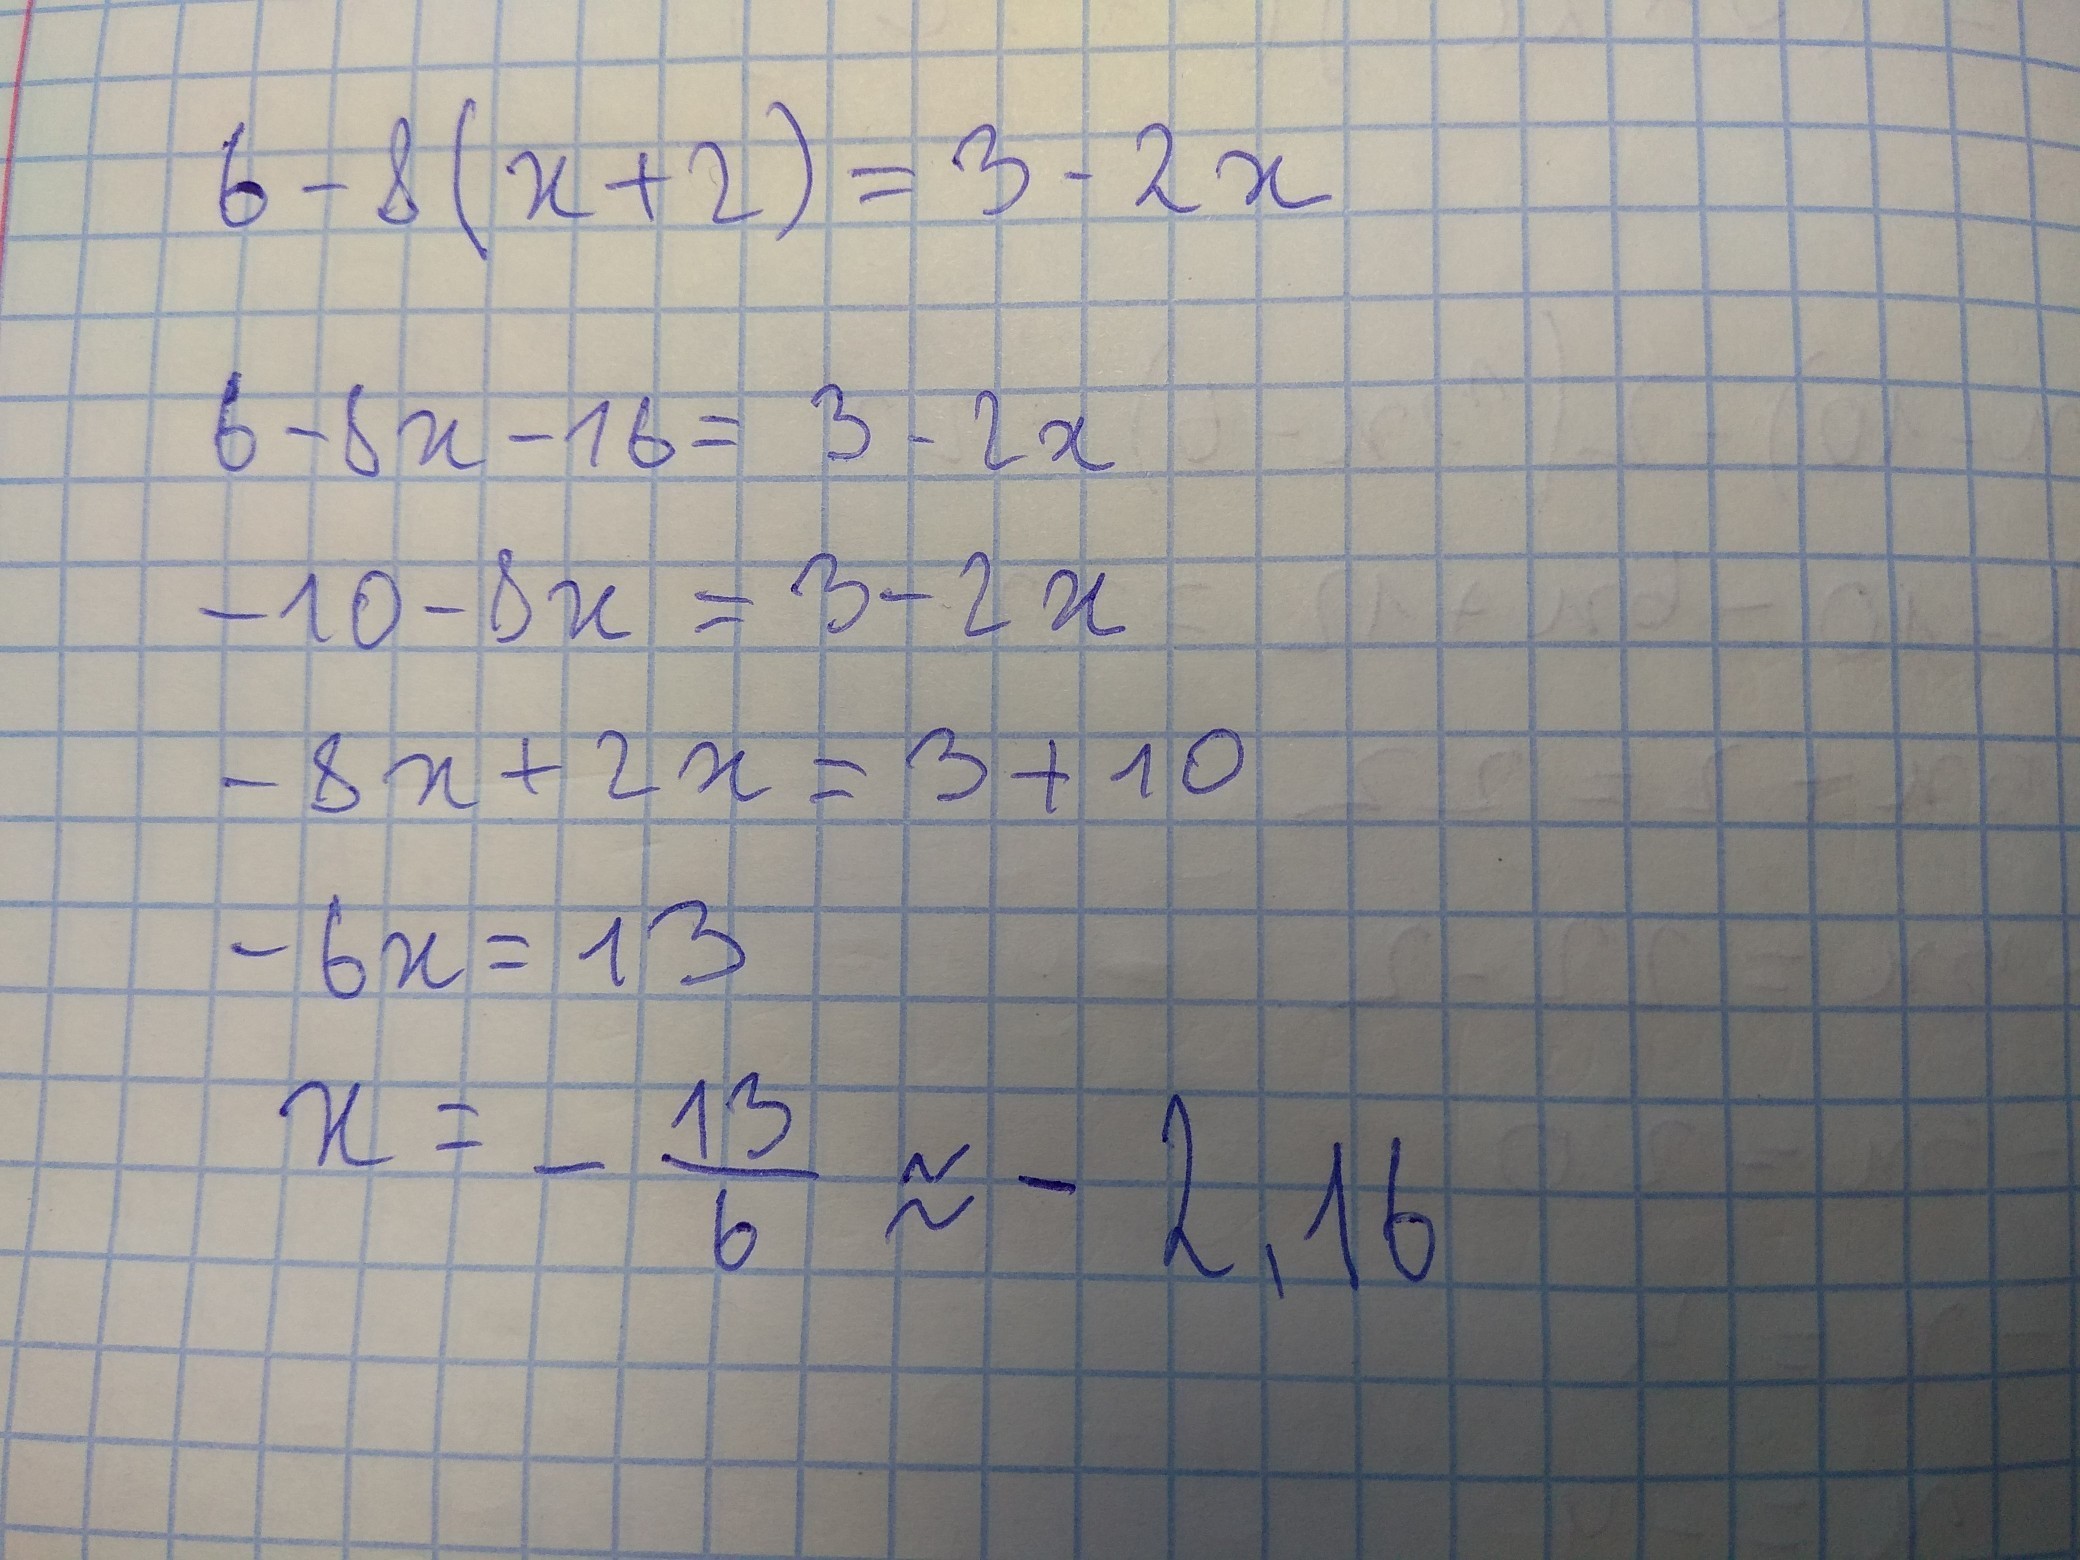 6-8(x+2)=3-2x
6-8x-16=3-2x
-10-8x=3-2x
-8x+2x=3+10
-6x=13
x=-13/6≈-2,16